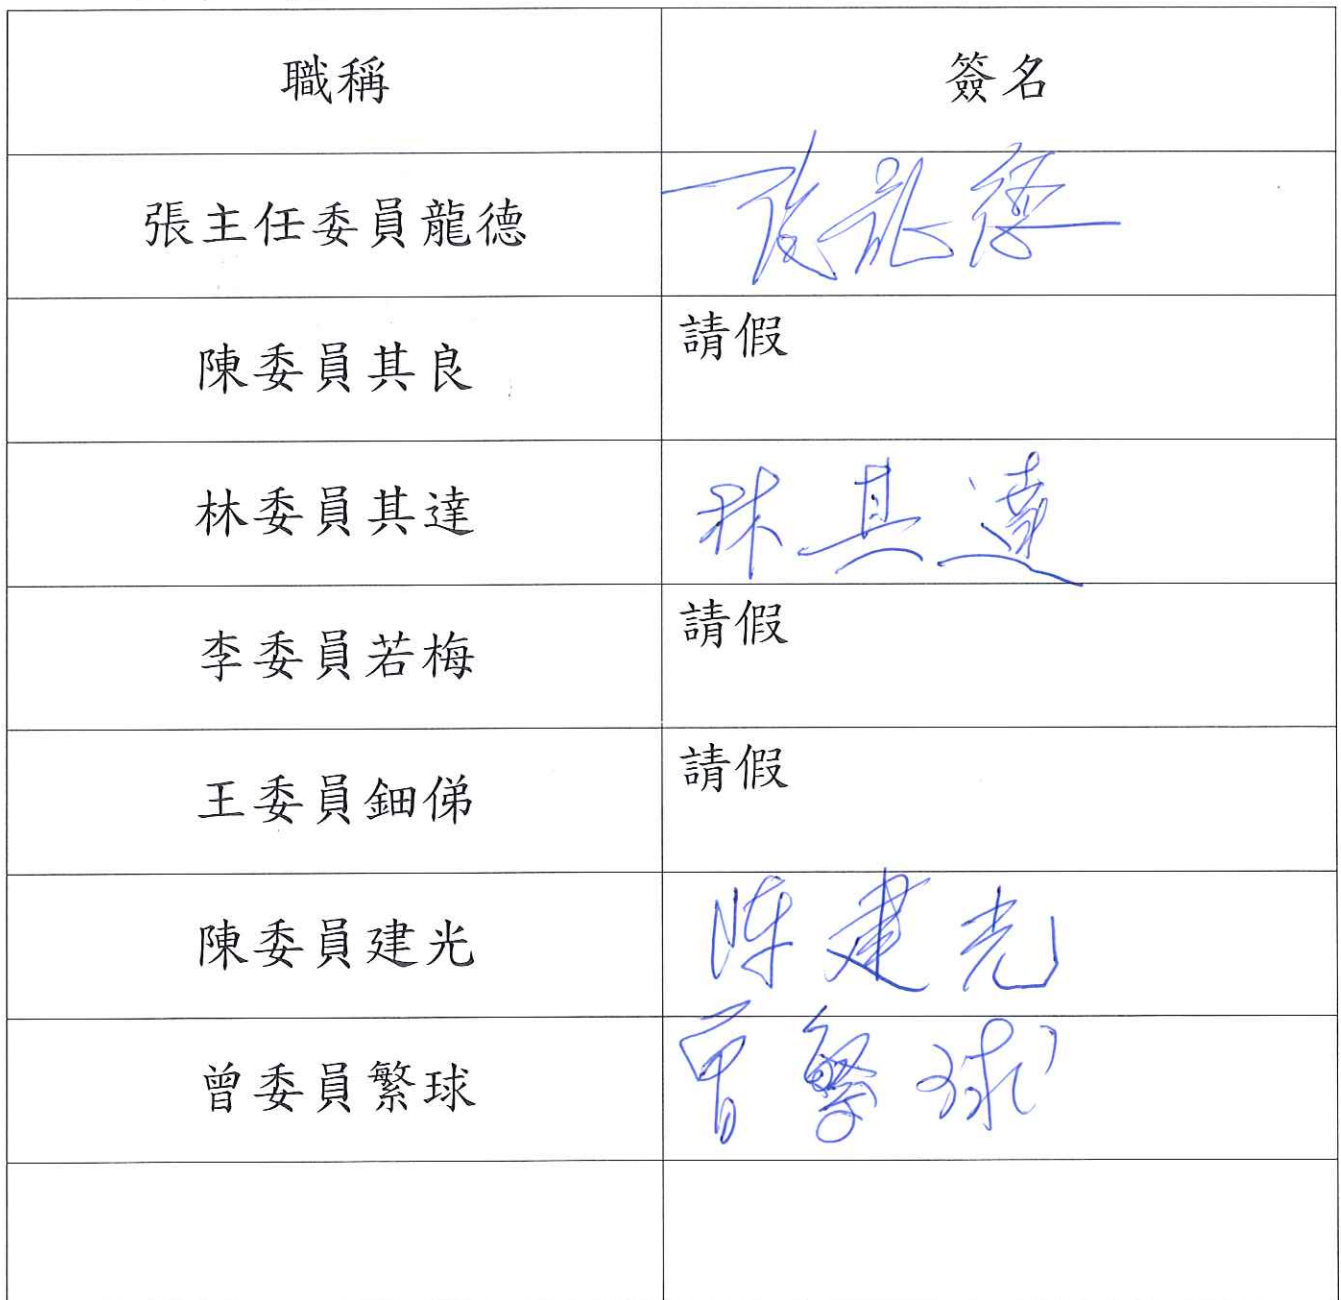 職稱
簽名
張主任委員龍德
張龍德
陳委員其良
請假
林委員其達
林其達
李委員若梅
請假
王委員鈿俤
請假
陳委員建光
陈建光
曾委員繁球
曾繁球